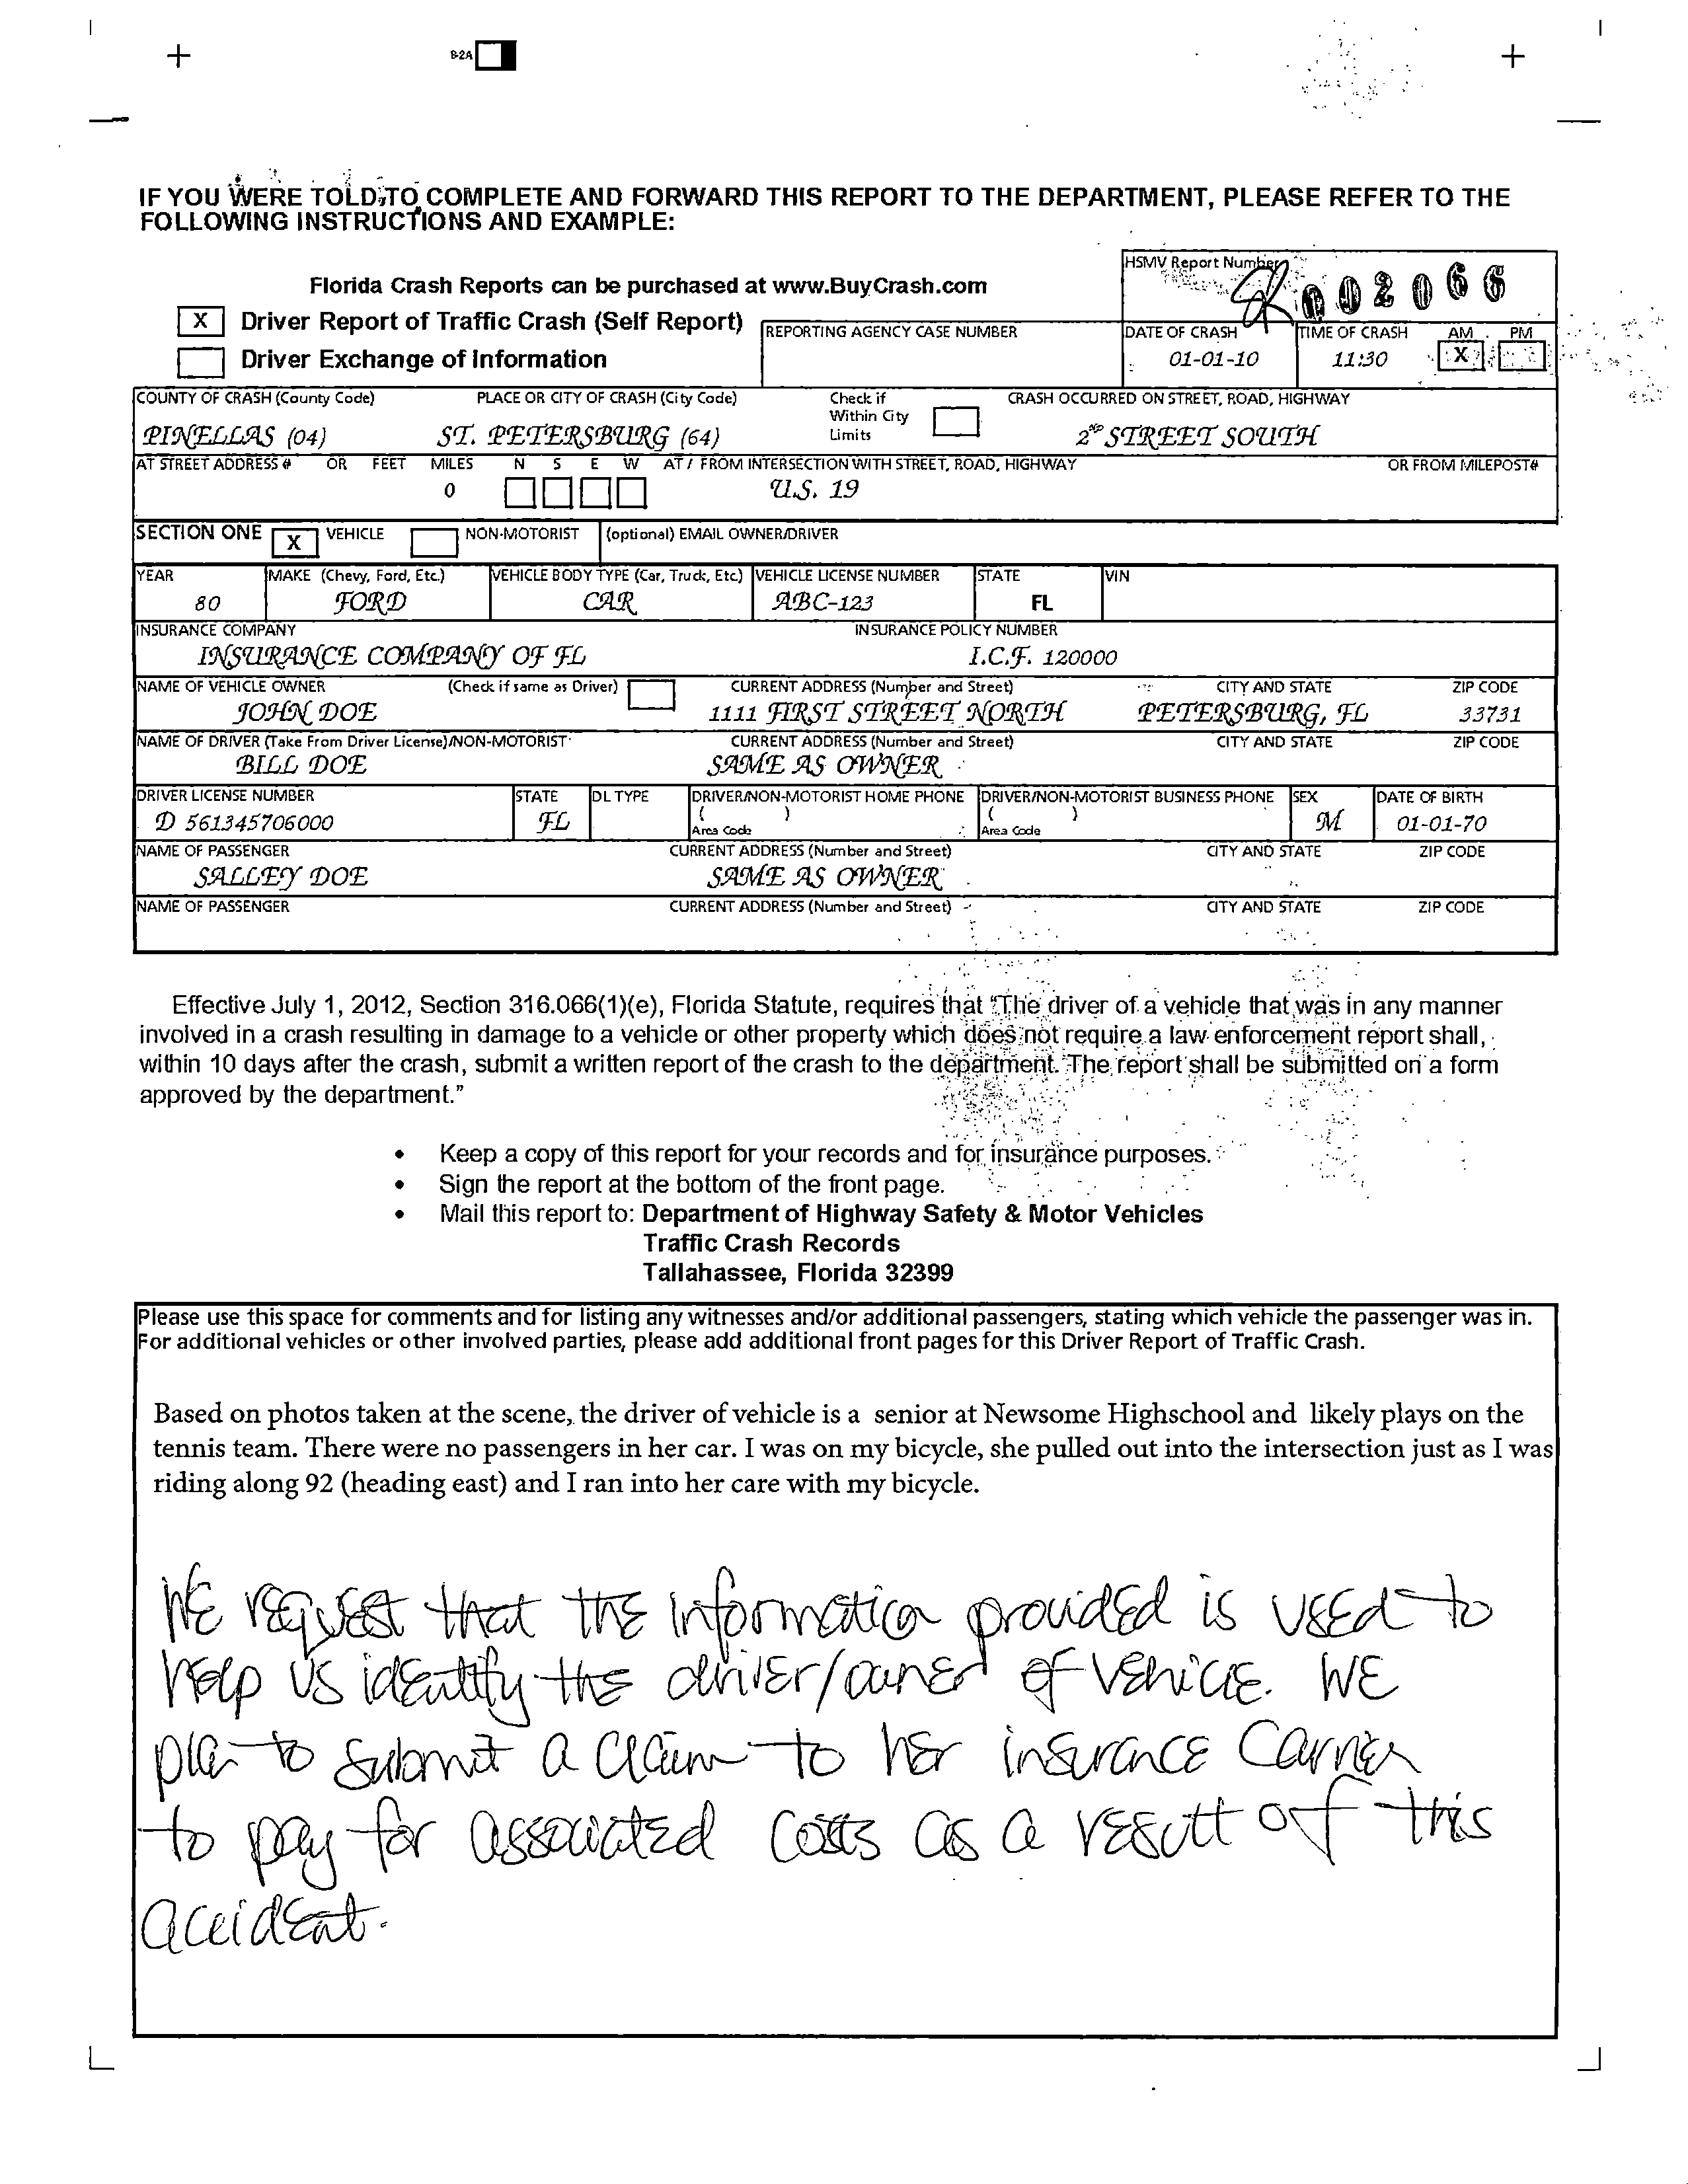 B-2A
IF YOU WERE TOLD TO COMPLETE AND FORWARD THIS REPORT TO THE DEPARTMENT, PLEASE REFER TO THE
FOLLOWING INSTRUCTIONS AND EXAMPLE:
HSMV Report Number
02066
Florida Crash Reports can be purchased at www.BuyCrash.com
X Driver Report of Traffic Crash (Self Report)
REPORTING AGENCY CASE NUMBER
DATE OF CRASH TIME OF CRASH AM PM
Driver Exchange of Information
01-01-10 11:30 X
COUNTY OF CRASH (County Code) PLACE OR CITY OF CRASH (City Code) Check if Within City Limits CRASH OCCURRED ON STREET, ROAD, HIGHWAY
PINELLAS (04) ST. PETERSBURG (64) 2ND STREET SOUTH
AT STREET ADDRESS # OR FEET MILES N S E W AT / FROM INTERSECTION WITH STREET, ROAD, HIGHWAY OR FROM MILEPOST#
0 U.S. 19
SECTION ONE X VEHICLE NON-MOTORIST (optional) EMAIL OWNER/DRIVER
YEAR MAKE (Chevy, Ford, Etc.) VEHICLE BODY TYPE (Car, Truck, Etc) VEHICLE LICENSE NUMBER STATE VIN
80 FORD CAR ABC-123 FL
INSURANCE COMPANY INSURANCE POLICY NUMBER
INSURANCE COMPANY OF FL I.C.F. 120000
NAME OF VEHICLE OWNER (Check if same as Driver) CURRENT ADDRESS (Number and Street) CITY AND STATE ZIP CODE
JOHN DOE 1111 FIRST STREET NORTH PETERSBURG, FL 33731
NAME OF DRIVER (Take From Driver License)/NON-MOTORIST CURRENT ADDRESS (Number and Street) CITY AND STATE ZIP CODE
BILL DOE SAME AS OWNER
DRIVER LICENSE NUMBER STATE DL TYPE DRIVER/NON-MOTORIST HOME PHONE DRIVER/NON-MOTORIST BUSINESS PHONE SEX DATE OF BIRTH
D 561345706000 FL ( ) ( ) M 01-01-70
Area Code Area Code
NAME OF PASSENGER CURRENT ADDRESS (Number and Street) CITY AND STATE ZIP CODE
SALLEY DOE SAME AS OWNER
NAME OF PASSENGER CURRENT ADDRESS (Number and Street) CITY AND STATE ZIP CODE
Effective July 1, 2012, Section 316.066(1)(e), Florida Statute, requires that "The driver of a vehicle that was in any manner
involved in a crash resulting in damage to a vehicle or other property which does not require a law enforcement report shall,
within 10 days after the crash, submit a written report of the crash to the department. The report shall be submitted on a form
approved by the department."
• Keep a copy of this report for your records and for insurance purposes.
• Sign the report at the bottom of the front page.
• Mail this report to: Department of Highway Safety & Motor Vehicles
Traffic Crash Records
Tallahassee, Florida 32399
Please use this space for comments and for listing any witnesses and/or additional passengers, stating which vehicle the passenger was in.
For additional vehicles or other involved parties, please add additional front pages for this Driver Report of Traffic Crash.
Based on photos taken at the scene, the driver of vehicle is a senior at Newsome Highschool and likely plays on the
tennis team. There were no passengers in her car. I was on my bicycle, she pulled out into the intersection just as I was
riding along 92 (heading east) and I ran into her care with my bicycle.
WE request that the information provided is used to
help us identify the driver/owner of vehicle. WE
plan to submit a claim to her insurance carrier
to pay for associated costs as a result of this
accident.